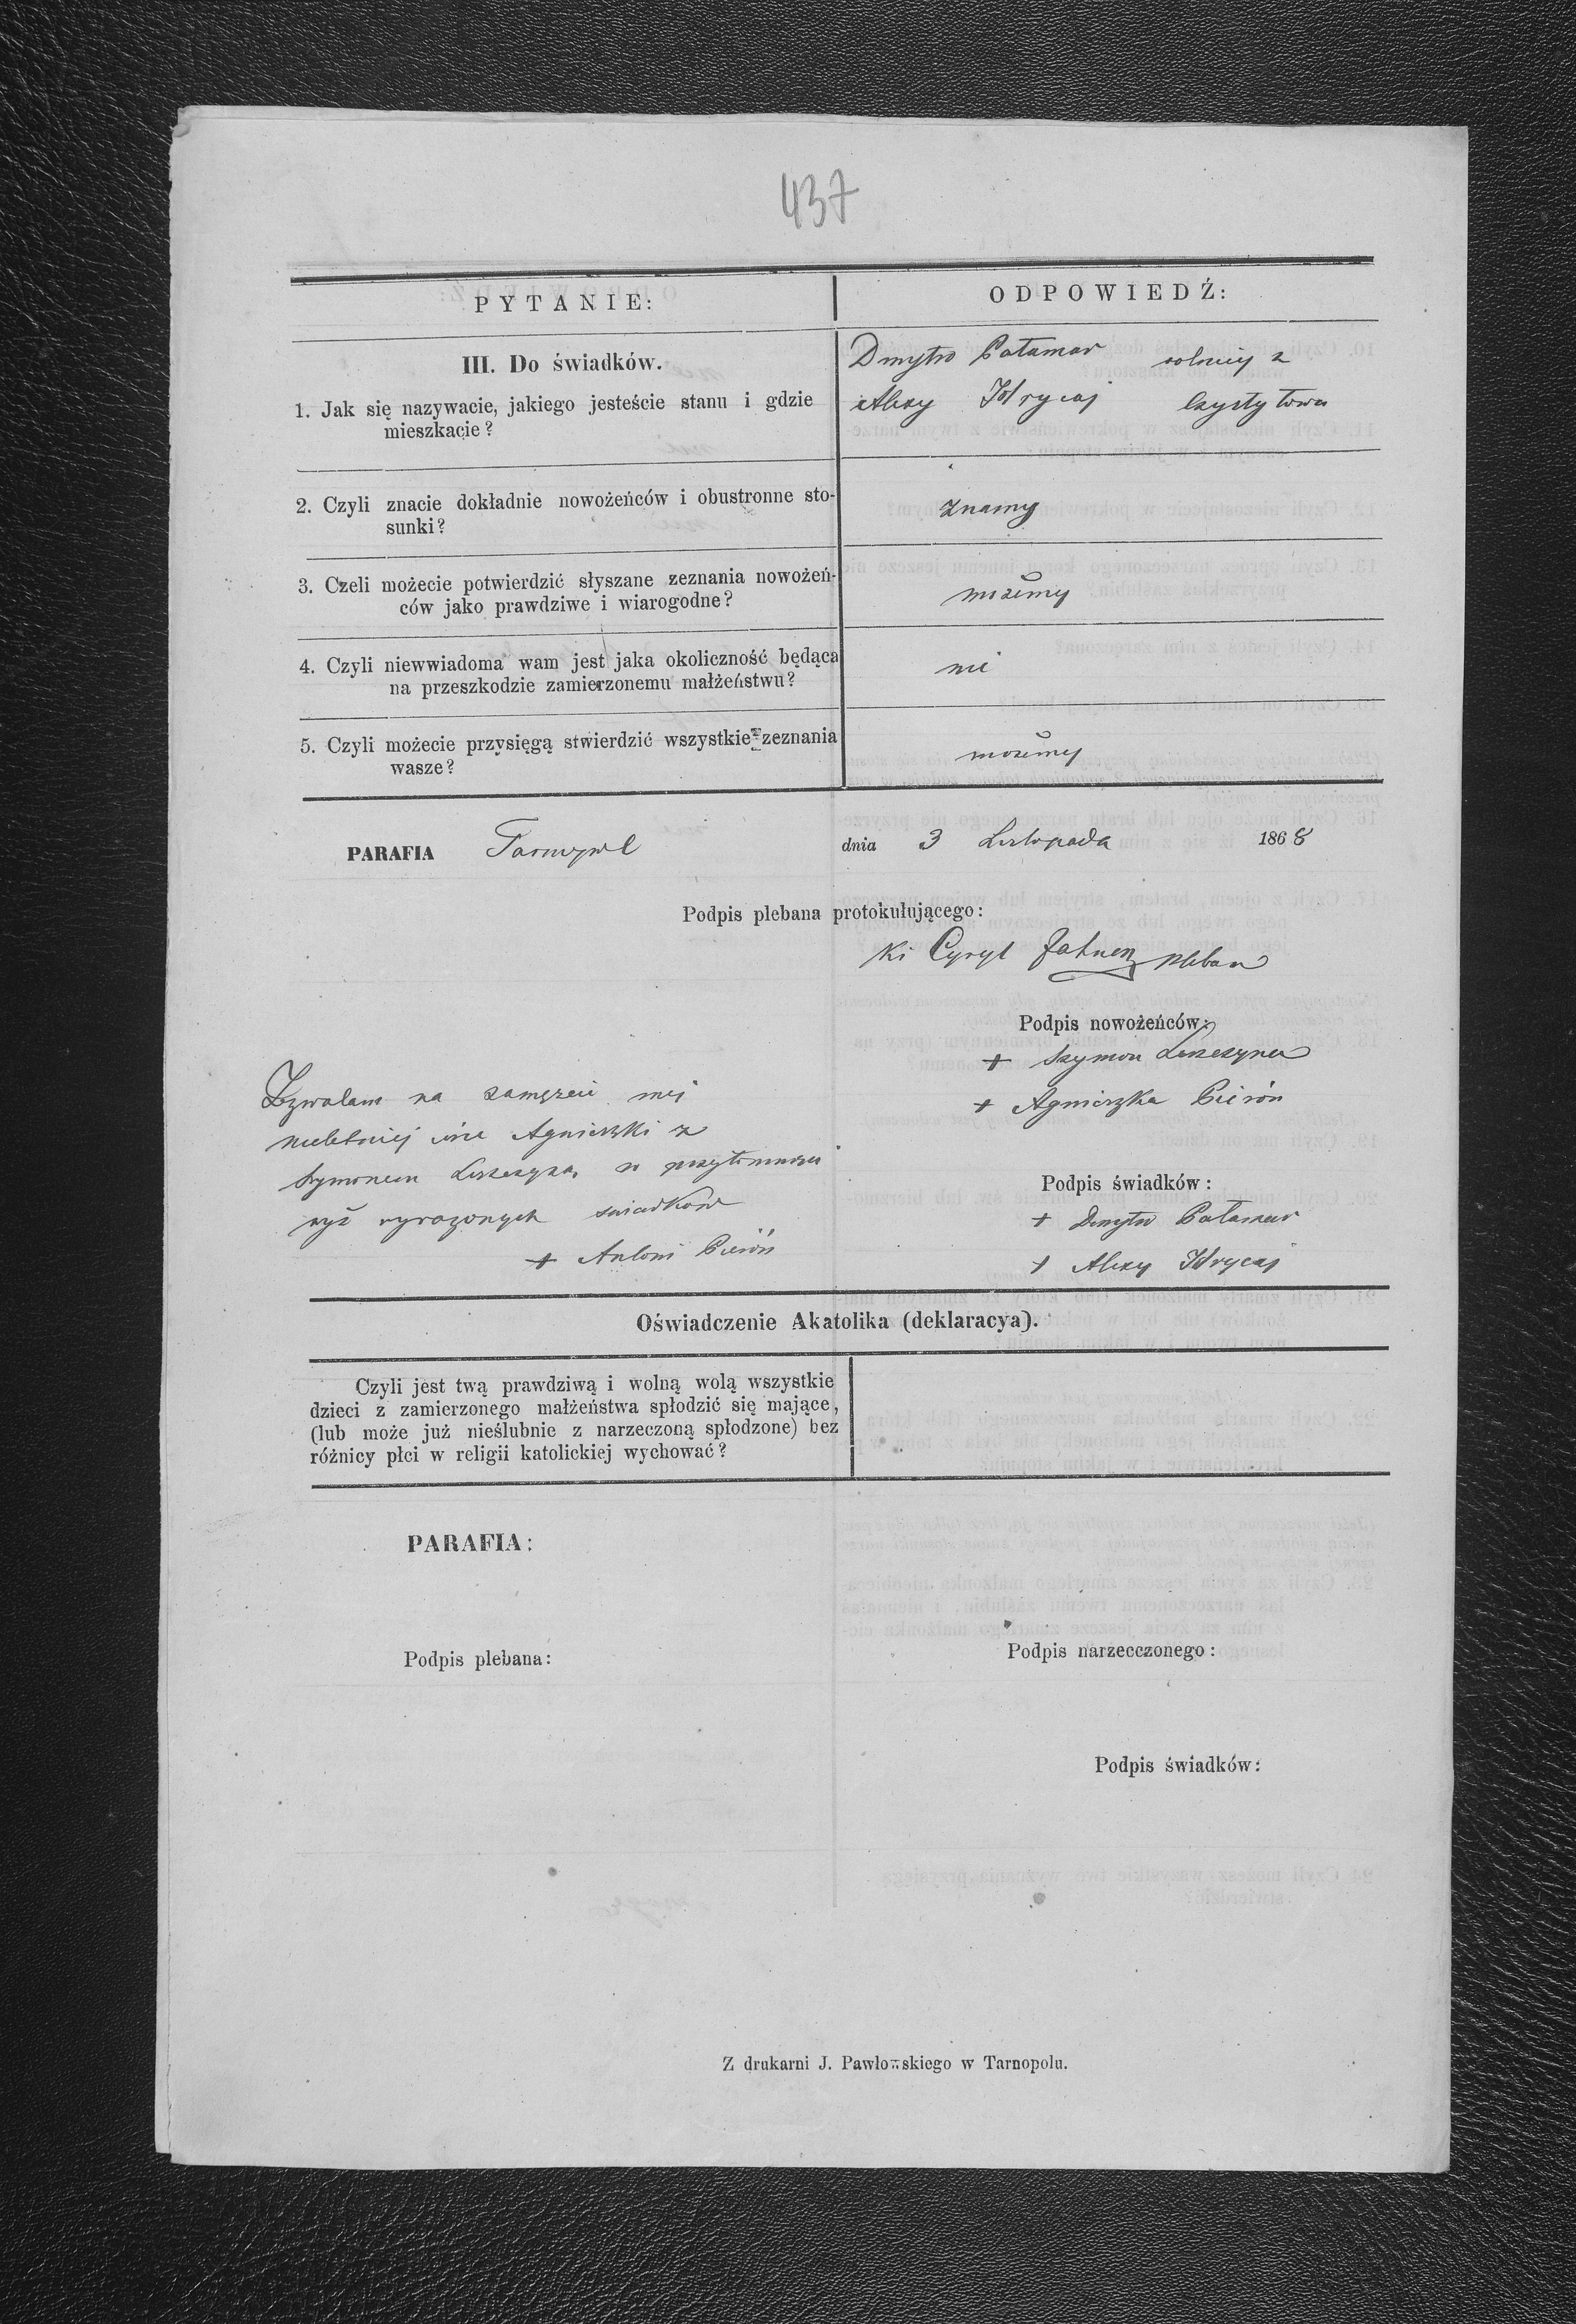 437
PYTANIE:
ODPOWIEDŹ:
III. Do świadków.
1. Jak się nazywacie, jakiego jesteście stanu i gdzie
mieszkacie?
Dmytro Pałamar rolnicy z
Alexy Hrycaj Czystyłowa
2. Czyli znacie dokładnie nowożeńców i obustronne sto-
sunki?
znamy
3. Czeli możecie potwierdzić słyszane zeznania nowożeń-
ców jako prawdziwe i wiarogodne?
możemy
4. Czyli niewwiadoma wam jest jaka okoliczność będąca
na przeszkodzie zamierzonemu małżeństwu?
nie
5. Czyli możecie przysięgą stwierdzić wszystkie zeznania
wasze?
możemy
PARAFIA
dnia 3 Listopada 1868
Podpis plebana protokułującego:
Cyryl pleban
Podpis nowożeńców:
+ Szymon
+ Agnieszka Pieróń
Zezwalam na zamęzcie mej
nieletniej Agnieszki z
Szymonem w przytomnosci
wyż wyrazonych swiadków
+ Antoni Pieróń
Podpis świadków:
+ Dmytro Pałamar
+ Alexy Hrycaj
Oświadczenie Akatolika (deklaracya).
Czyli jest twą prawdziwą i wolną wolą wszystkie
dzieci z zamierzonego małżeństwa spłodzić się mające,
(lub może już nieślubnie z narzeczoną spłodzone) bez
różnicy płci w religii katolickiej wychować?
PARAFIA:
Podpis plebana:
Podpis narzecczonego:
Podpis świadków:
Z drukarni J. Pawlowskiego w Tarnopolu.